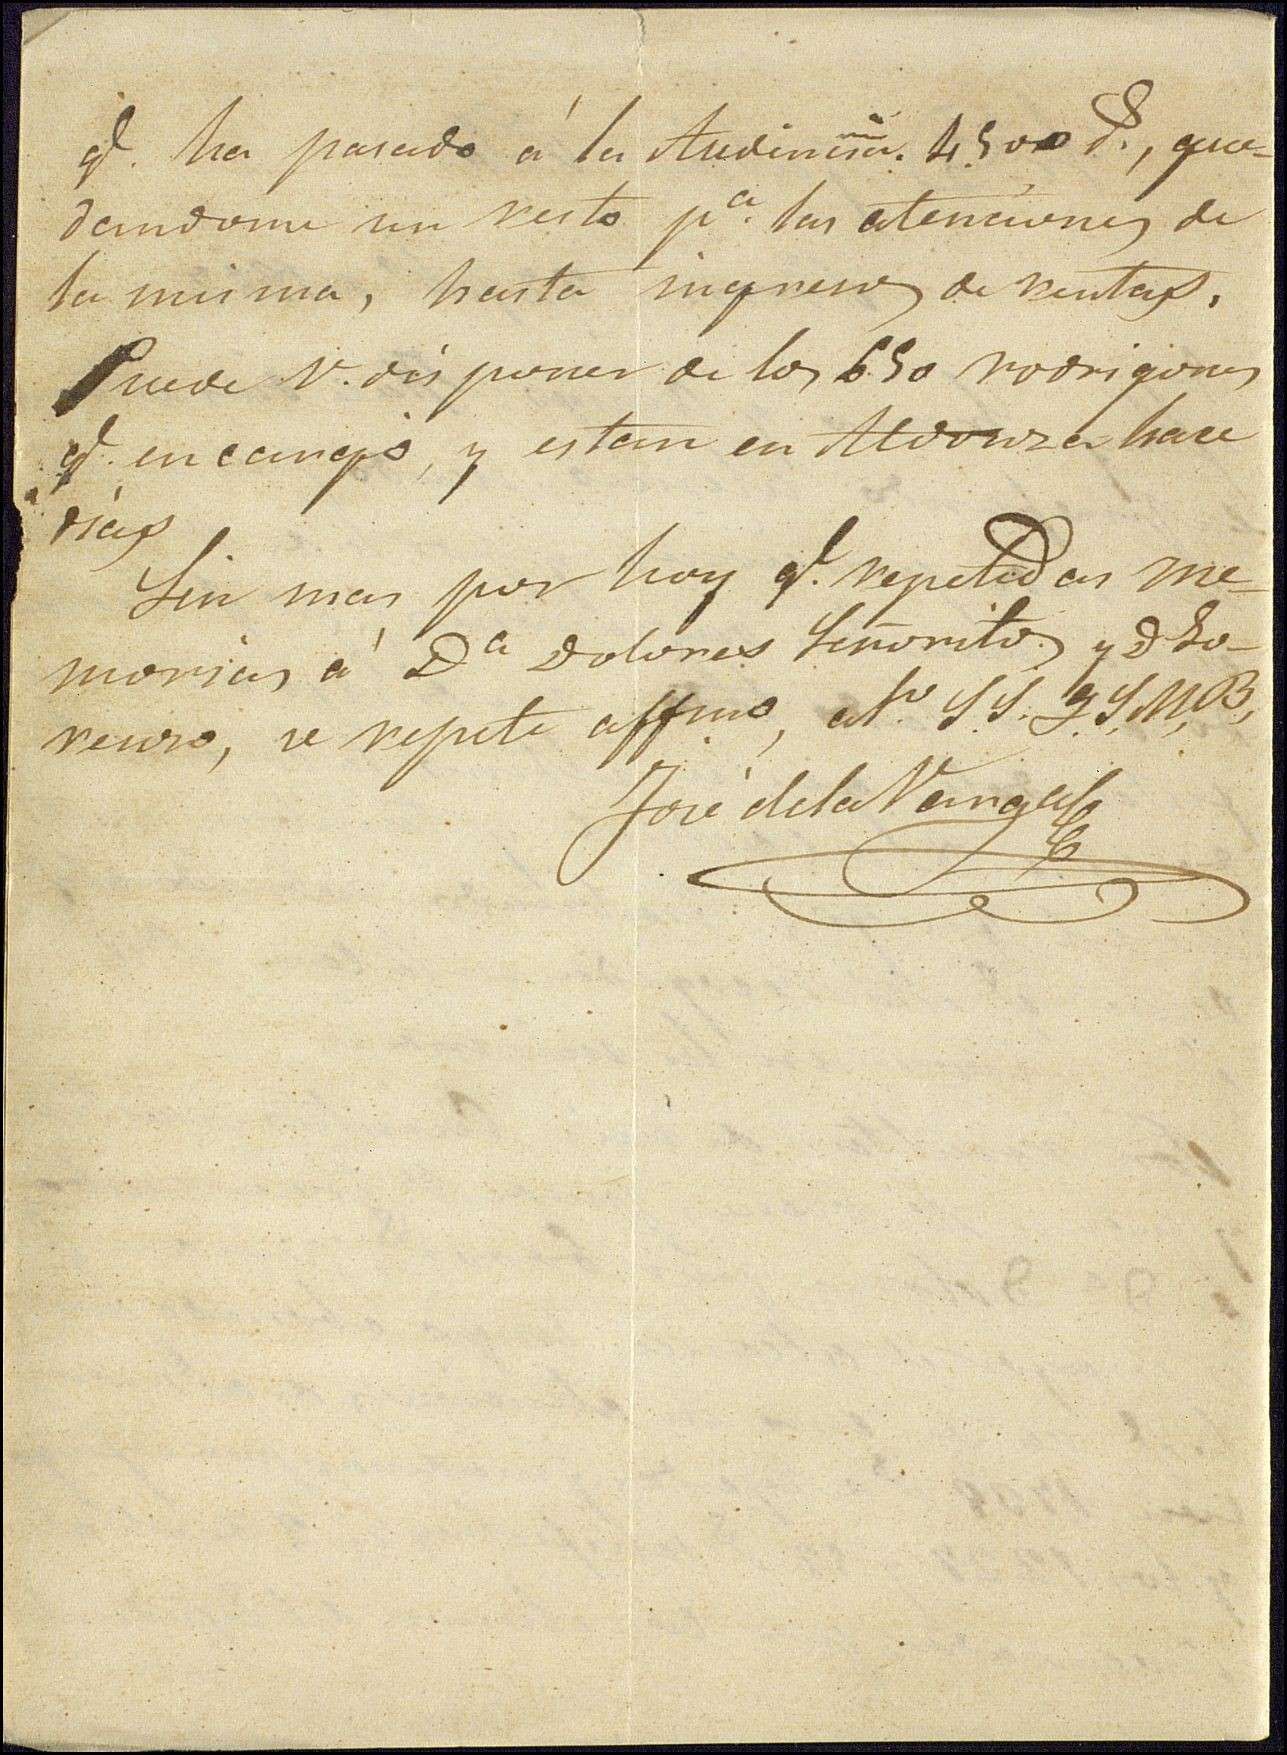 qe. ha pasado á la 4500 rs., que-
dandome un resto pa. las atenciones de
la misma, hasta ingresos de rentas.
Puede V. disponer de los 650 rodrigones
qe. encargó, y estan en hace
días
Sin mas por hoy qe. repetidas me-
morias á Da Dolores Señoritos y Dn Lo-
renzo, se repite affmo, ato. S S. Q. S. M, B,
José dela